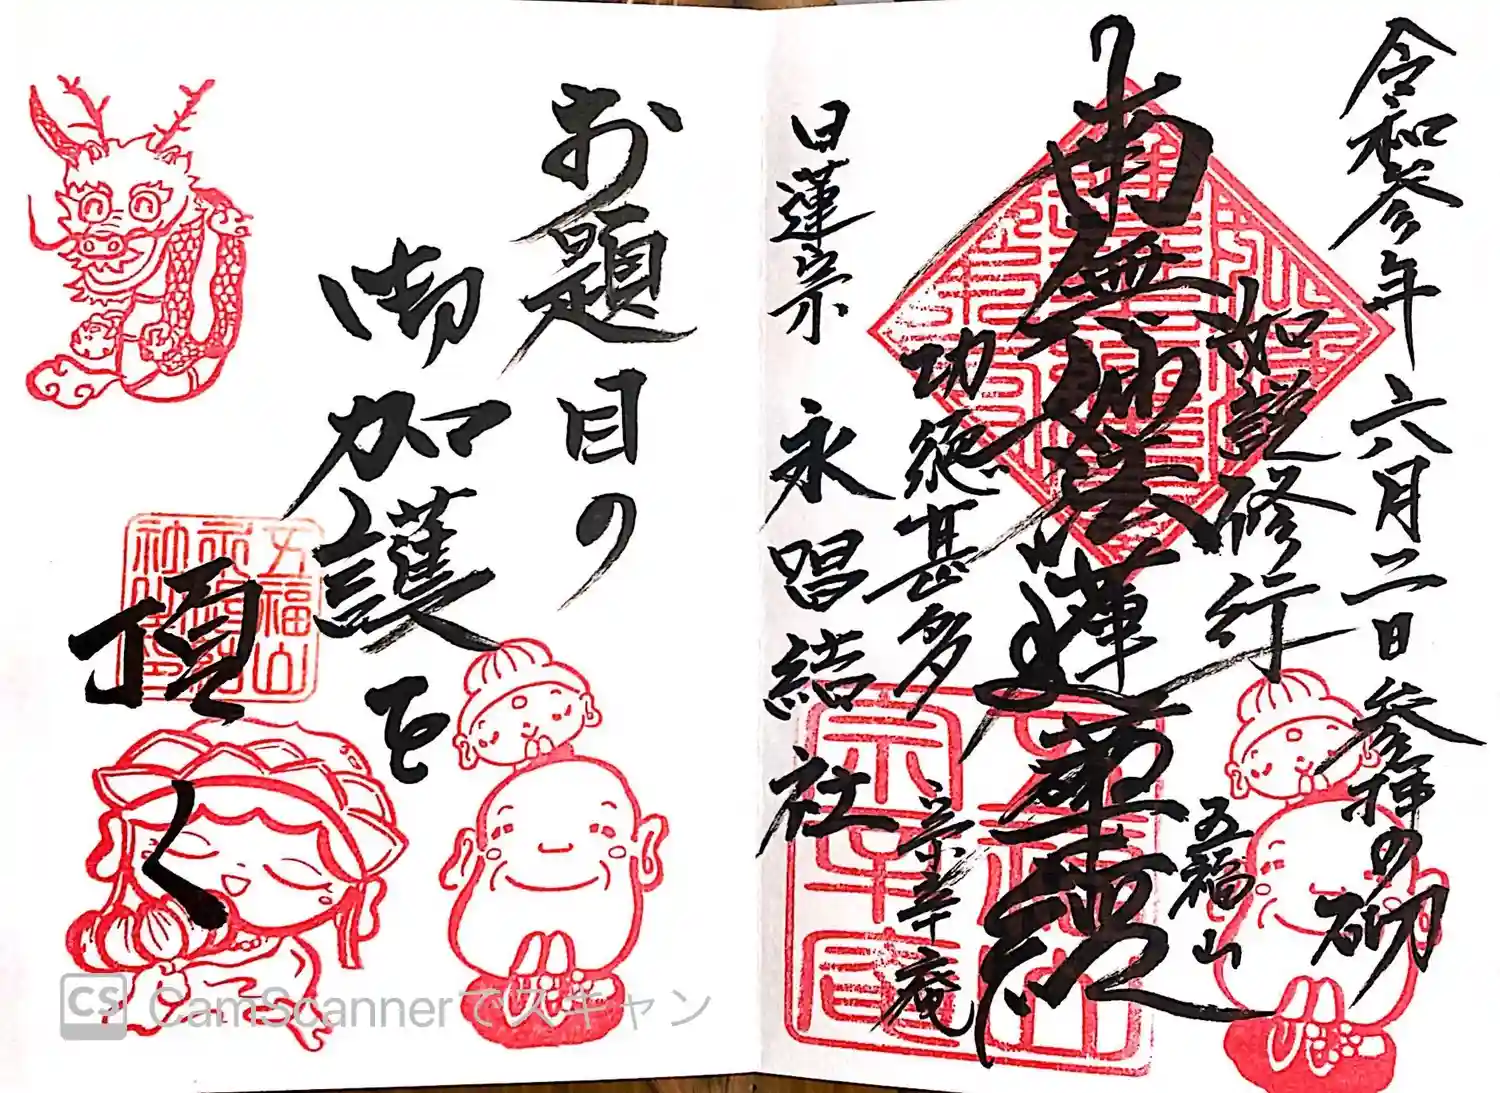 令和参年六月二日参拝の砌
如説修行
五福山
南無妙法蓮華経
功徳甚多
宗幸庵
日蓮宗 永昌結社
お題目の
御加護を
頂く
五福山
CS CamScannerでスキャン